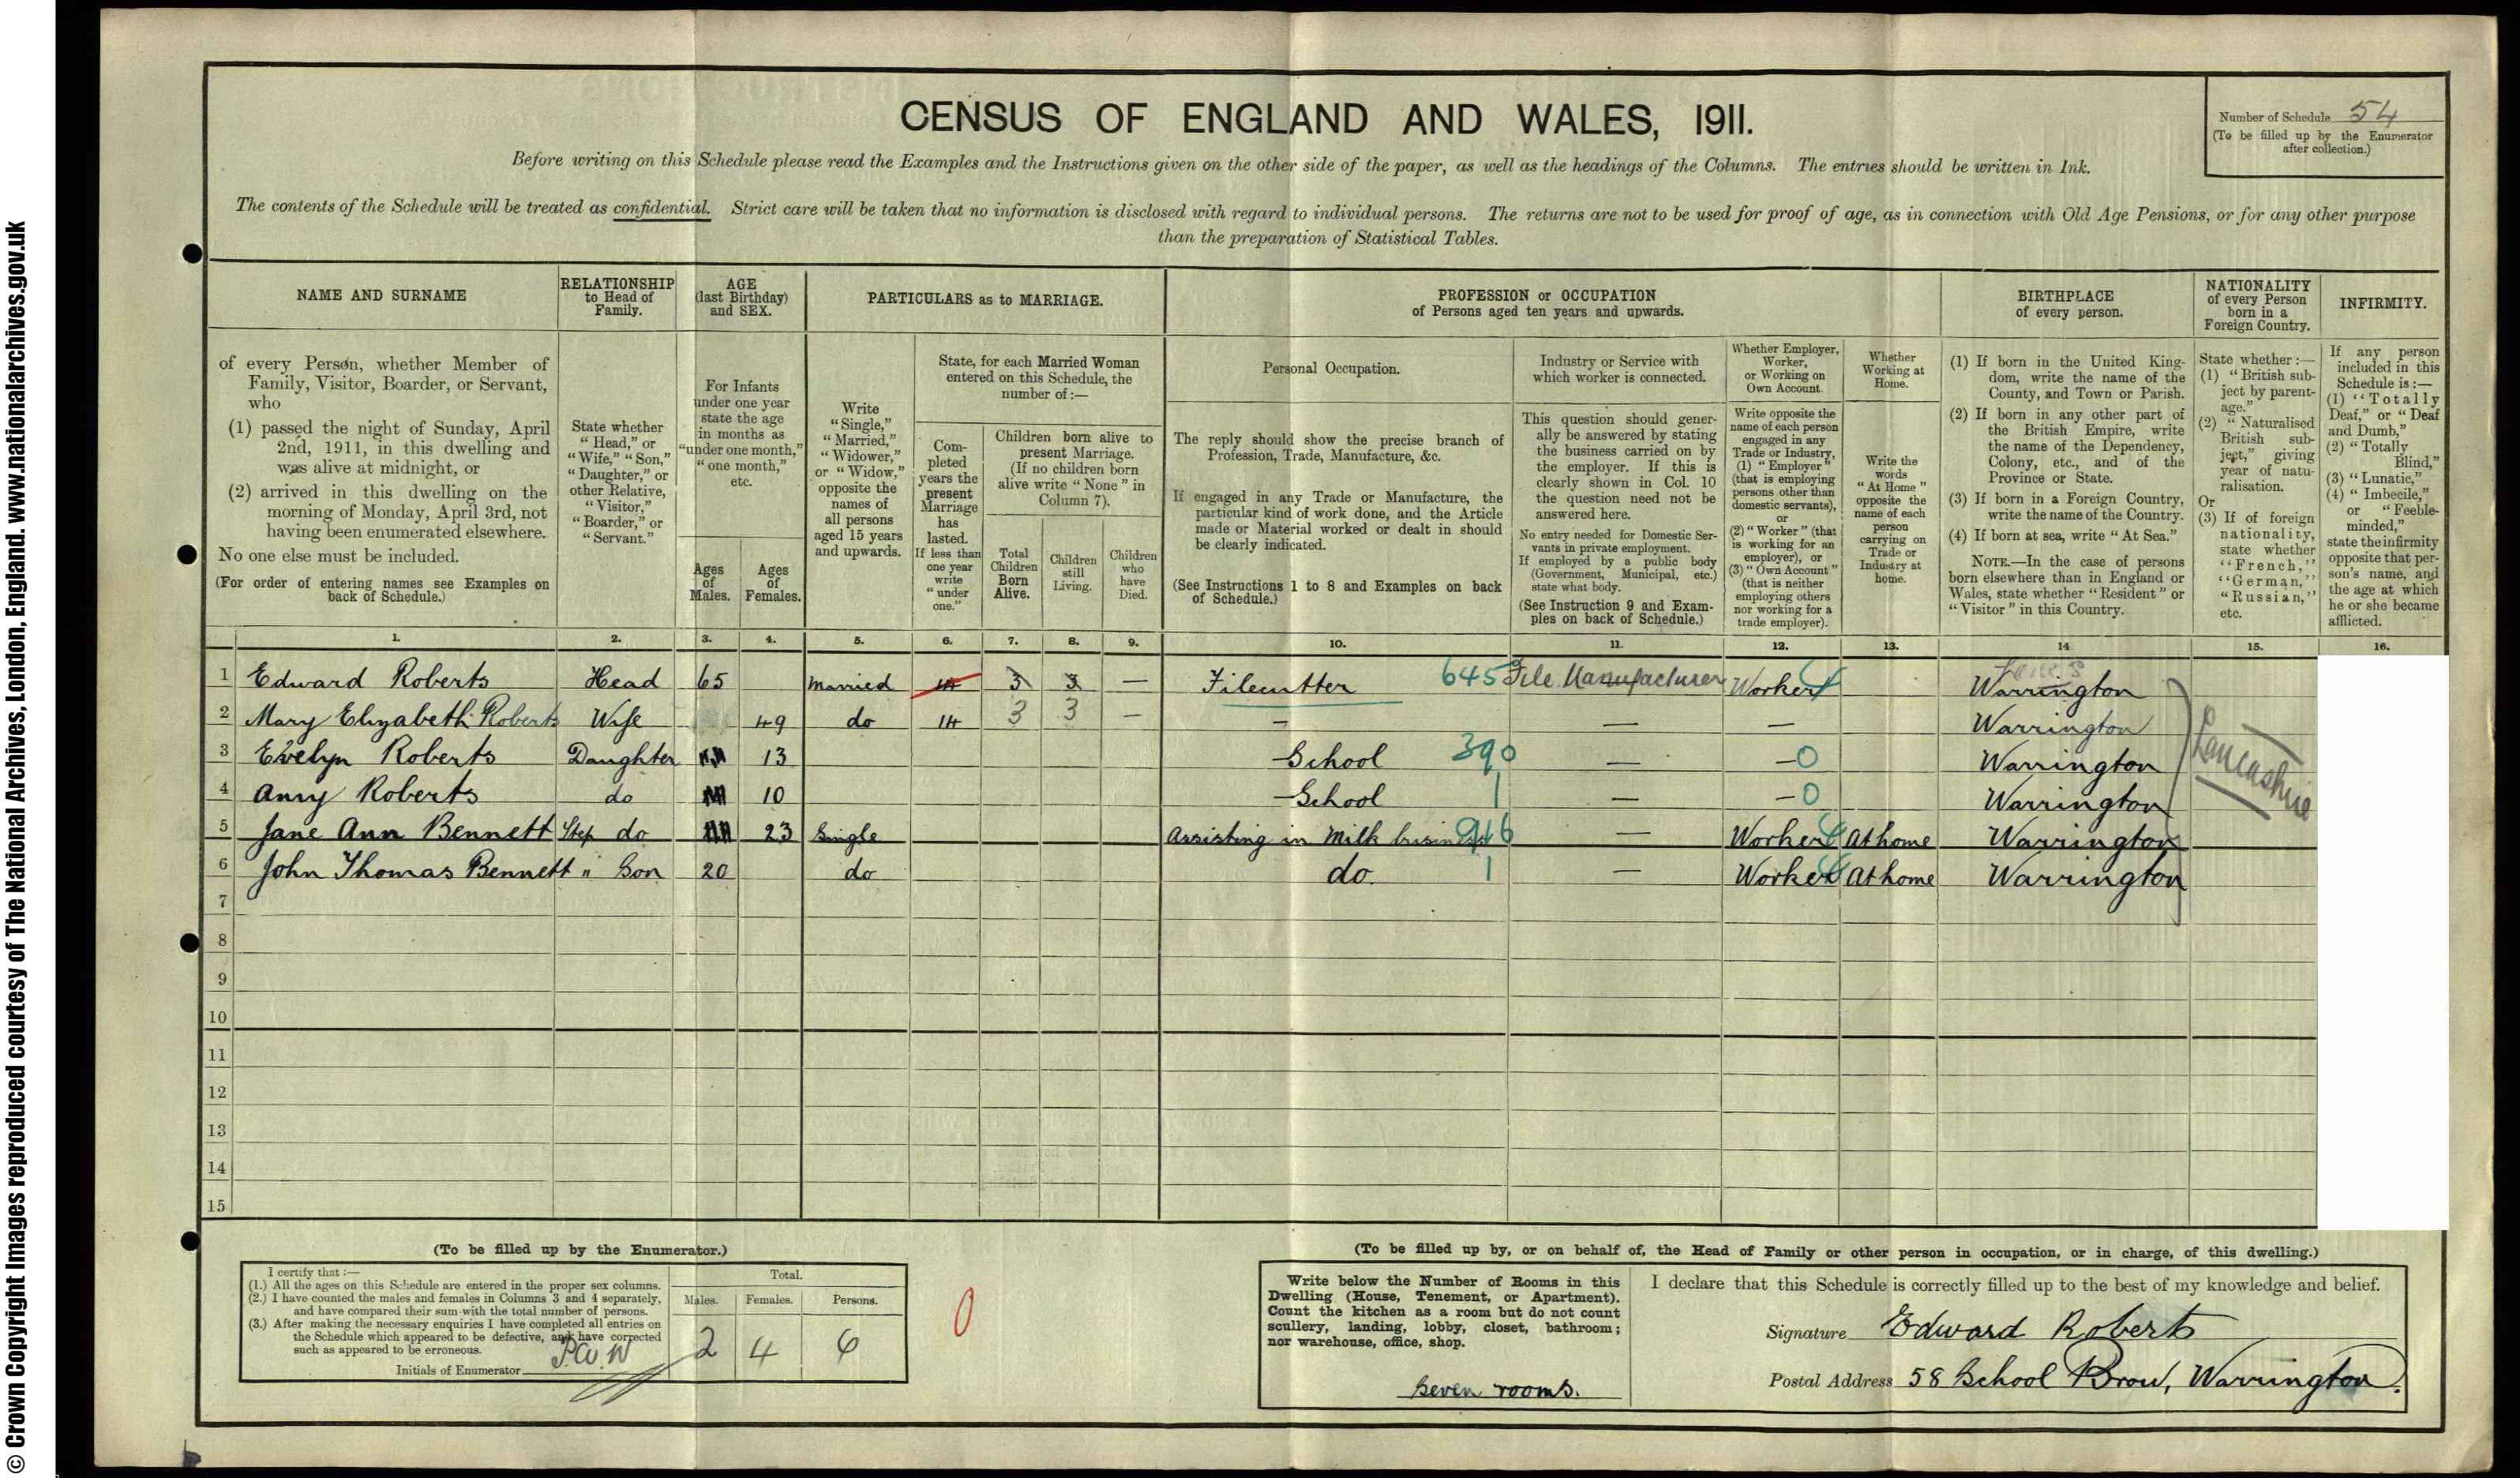 © Crown Copyright Images reproduced courtesy of The National Archives, London, England. www.nationalarchives.gov.uk
CENSUS OF ENGLAND AND WALES, 1911.
Number of Schedule 54
(To be filled up by the Enumerator
after collection.)
Before writing on this Schedule please read the Examples and the Instructions given on the other side of the paper, as well as the headings of the Columns. The entries should be written in Ink.
The contents of the Schedule will be treated as confidential. Strict care will be taken that no information is disclosed with regard to individual persons. The returns are not to be used for proof of age, as in connection with Old Age Pensions, or for any other purpose
than the preparation of Statistical Tables.
NAME AND SURNAME
of every Person, whether Member of
Family, Visitor, Boarder, or Servant,
who
(1) passed the night of Sunday, April
2nd, 1911, in this dwelling and
was alive at midnight, or
(2) arrived in this dwelling on the
morning of Monday, April 3rd, not
having been enumerated elsewhere.
No one else must be included.
(For order of entering names see Examples on
back of Schedule.)
RELATIONSHIP
to Head of
Family.
State whether
"Head," or
"Wife," "Son,"
"Daughter," or
other Relative,
"Visitor,"
"Boarder," or
"Servant."
AGE
(last Birthday)
and SEX.
For Infants
under one year
state the age
in months as
"under one month,"
"one month,"
etc.
Ages
of
Males.
Ages
of
Females.
PARTICULARS as to MARRIAGE.
Write
"Single,"
"Married,"
"Widower,"
or "Widow,"
opposite the
names of
all persons
aged 15 years
and upwards.
State, for each Married Woman
entered on this Schedule, the
number of:—
Com-
pleted
years the
present
Marriage
has
lasted.
If less than
one year
write
"under
one."
Children born alive to
present Marriage.
(If no children born
alive write "None" in
Column 7).
Total
Children
Born
Alive.
Children
still
Living.
Children
who
have
Died.
PROFESSION or OCCUPATION
of Persons aged ten years and upwards.
Personal Occupation.
The reply should show the precise branch of
Profession, Trade, Manufacture, &c.
If engaged in any Trade or Manufacture, the
particular kind of work done, and the Article
made or Material worked or dealt in should
be clearly indicated.
(See Instructions 1 to 8 and Examples on back
of Schedule.)
Industry or Service with
which worker is connected.
This question should gener-
ally be answered by stating
the business carried on by
the employer. If this is
clearly shown in Col. 10
the question need not be
answered here.
No entry needed for Domestic Ser-
vants in private employment.
If employed by a public body
(Government, Municipal, etc.)
state what body.
(See Instruction 9 and Exam-
ples on back of Schedule.)
Whether Employer,
Worker,
or Working on
Own Account.
Write opposite the
name of each person
engaged in any
Trade or Industry,
(1) "Employer"
(that is employing
persons other than
domestic servants),
or
(2) "Worker" (that
is working for an
employer), or
(3) "Own Account"
(that is neither
employing others
nor working for a
trade employer).
Whether
Working at
Home.
Write the
words
"At Home"
opposite the
name of each
person
carrying on
Trade or
Industry at
home.
BIRTHPLACE
of every person.
(1) If born in the United King-
dom, write the name of the
County, and Town or Parish.
(2) If born in any other part of
the British Empire, write
the name of the Dependency,
Colony, etc., and of the
Province or State.
(3) If born in a Foreign Country,
write the name of the Country.
(4) If born at sea, write "At Sea."
NOTE.—In the case of persons
born elsewhere than in England or
Wales, state whether "Resident" or
"Visitor" in this Country.
NATIONALITY
of every Person
born in a
Foreign Country.
State whether:—
(1) "British sub-
ject by parent-
age."
(2) "Naturalised
British sub-
ject," giving
year of natu-
ralisation.
Or
(3) If of foreign
nationality,
state whether
"French,"
"German,"
"Russian,"
etc.
INFIRMITY.
If any person
included in this
Schedule is:—
(1) "Totally
Deaf," or "Deaf
and Dumb,"
(2) "Totally
Blind,"
(3) "Lunatic,"
(4) "Imbecile,"
or "Feeble-
minded,"
state the infirmity
opposite that per-
son's name, and
the age at which
he or she became
afflicted.
1. 2. 3. 4. 5. 6. 7. 8. 9. 10. 11. 12. 13. 14 15. 16.
1 Edward Roberts Head 65 Married 14 3 3 — Filecutter 645 File Manufacturer Worker Warrington
2 Mary Elizabeth Roberts Wife 49 do 14 3 3 — — — — Warrington
3 Evelyn Roberts Daughter 13 School 390 — —0 Warrington
4 Anny Roberts do 10 School 1 — —0 Warrington
5 Jane Ann Bennett Step do 23 Single Assisting in Milk business 946 — Worker At home Warrington
6 John Thomas Bennett " Son 20 do do. 1 — Worker At home Warrington
Lancashire
7
8
9
10
11
12
13
14
15
(To be filled up by the Enumerator.)
I certify that:—
(1.) All the ages on this Schedule are entered in the proper sex columns.
(2.) I have counted the males and females in Columns 3 and 4 separately,
and have compared their sum with the total number of persons.
(3.) After making the necessary enquiries I have completed all entries on
the Schedule which appeared to be defective, and have corrected
such as appeared to be erroneous.
Initials of Enumerator P.W.W
Total.
Males. Females. Persons.
2 4 6
0
(To be filled up by, or on behalf of, the Head of Family or other person in occupation, or in charge, of this dwelling.)
Write below the Number of Rooms in this
Dwelling (House, Tenement, or Apartment).
Count the kitchen as a room but do not count
scullery, landing, lobby, closet, bathroom;
nor warehouse, office, shop.
Seven rooms.
I declare that this Schedule is correctly filled up to the best of my knowledge and belief.
Signature Edward Roberts
Postal Address 58 School Brow, Warrington.